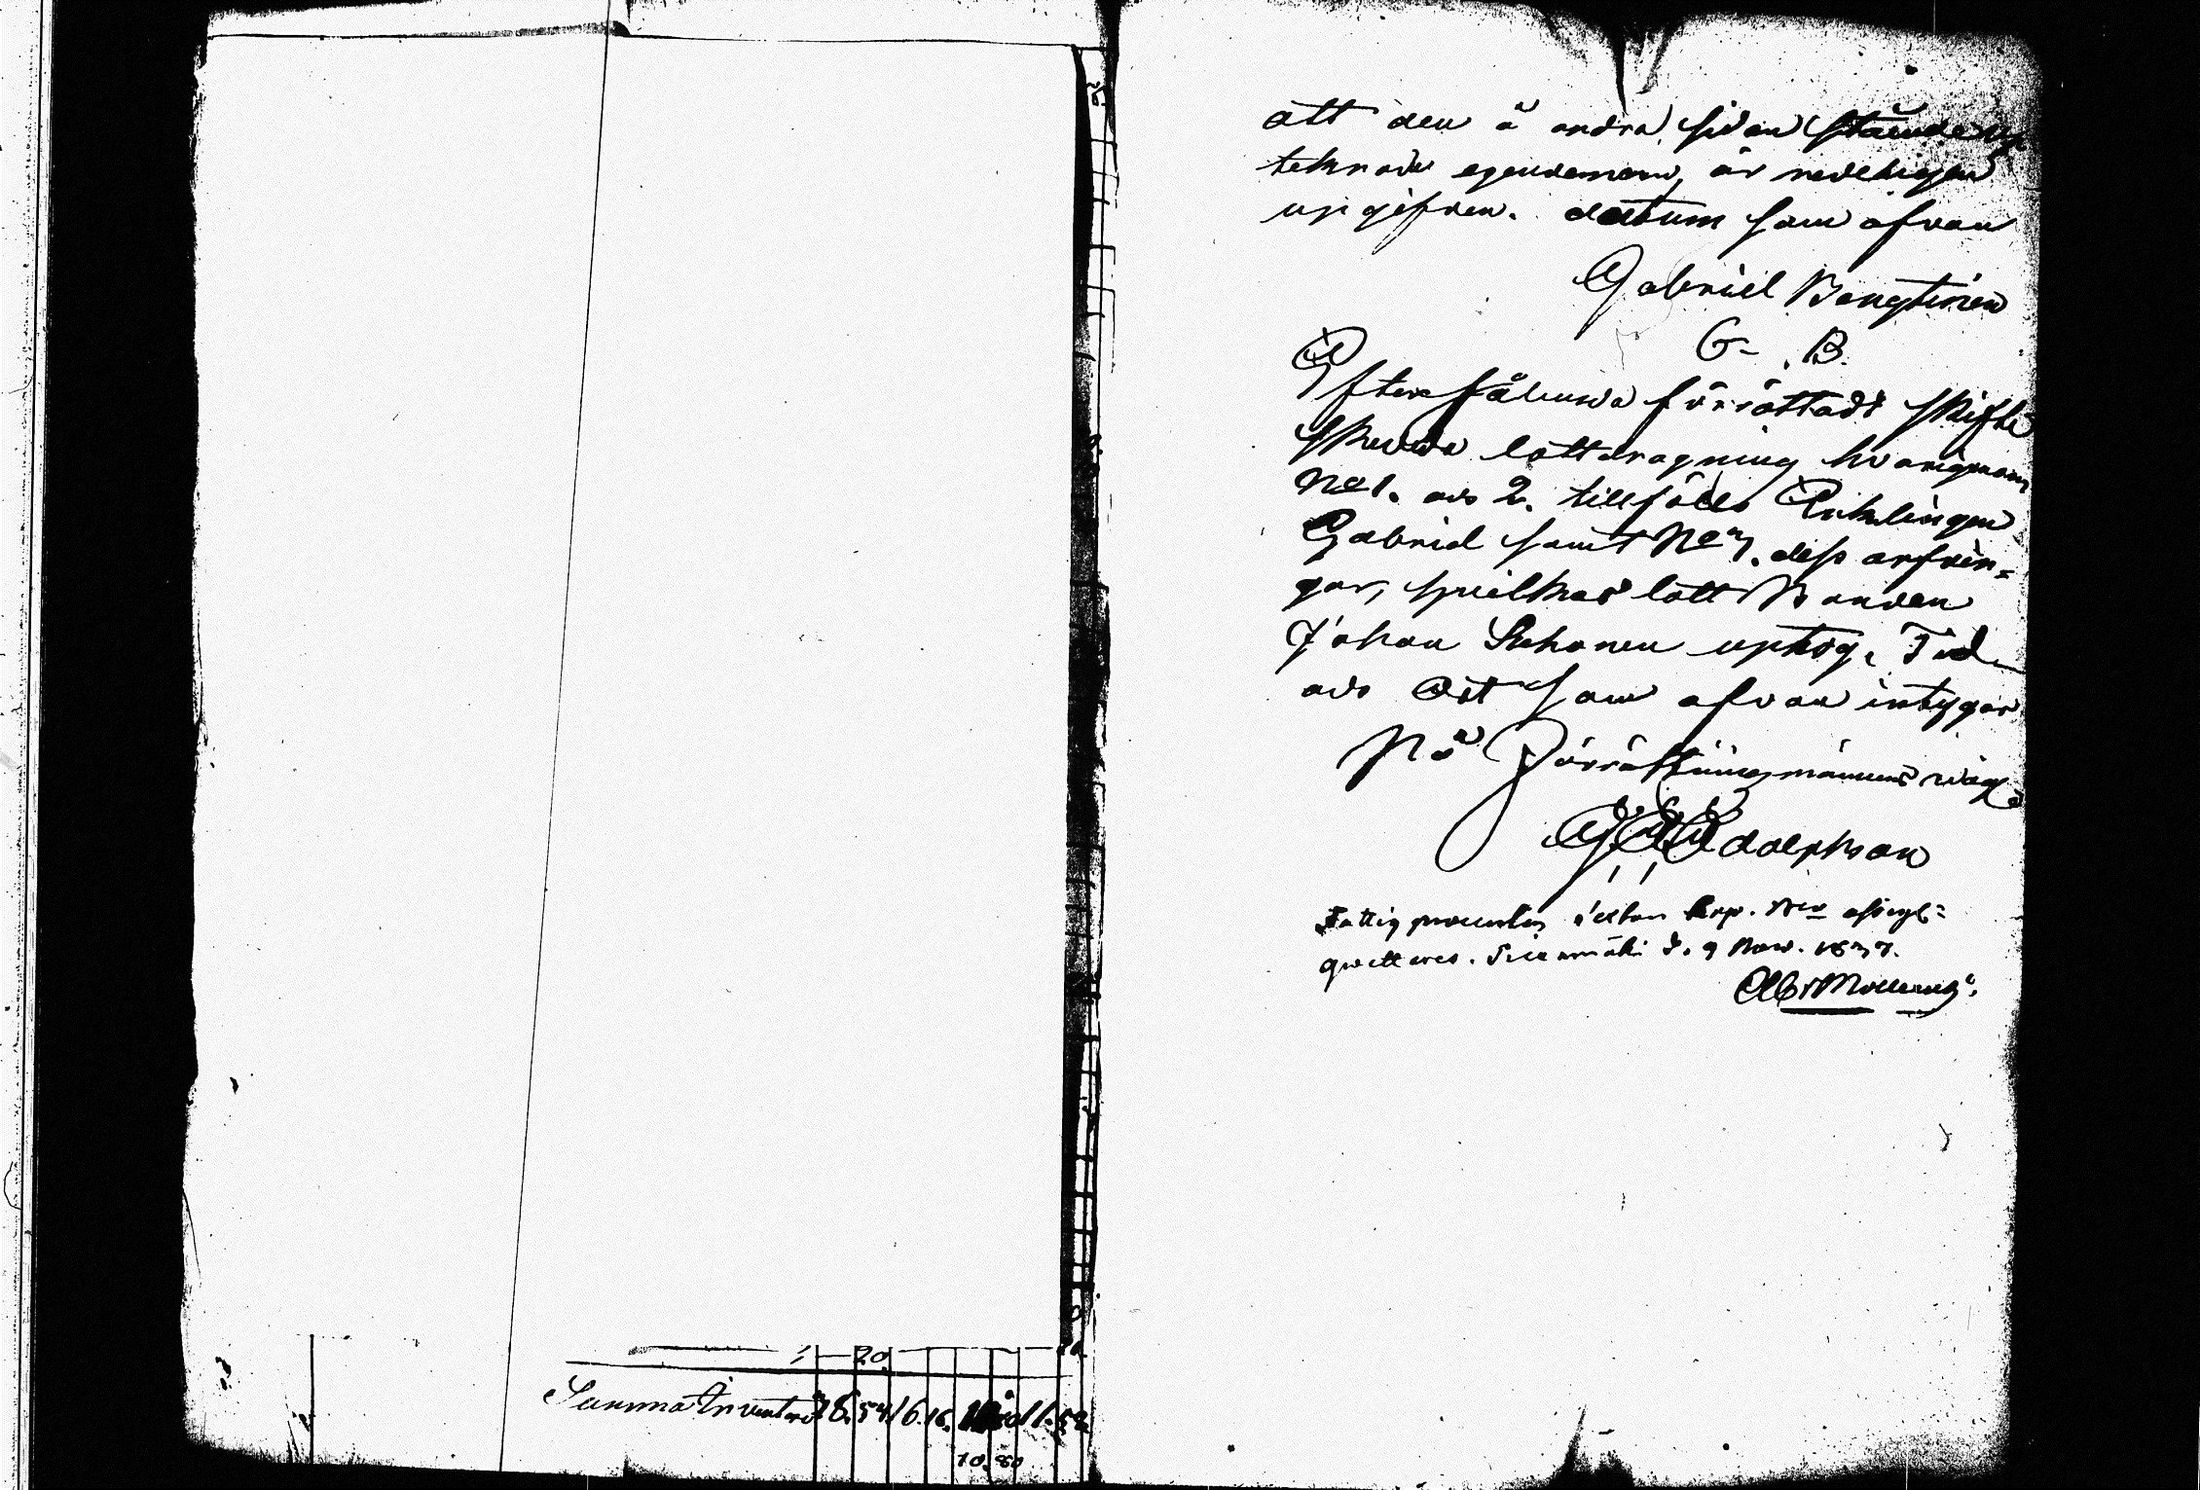 20.
Summa Inventari 18. 54 16. 16. 11. 52
10. 80
att den å andra sidan stående up
teknade egendomen, är redeligen
upgifven. datum som ofvan
Gabriel Bengtinen
G. B.
Efter sålunda förrättadt skifte
skedde lottdragning hvarigenom
No 1. och 2. tillföllo Enklingen
Gabriel samt No 3. dess arfvin=
gar, hvilkas lott Bonden
Johan Suhonen uptog. Tid
och Ort som ofvan intygar
På Förrättningsmännens wäg
Adolphson
Fattig procenten
qvitteras. d. 9 Nov. 1837.